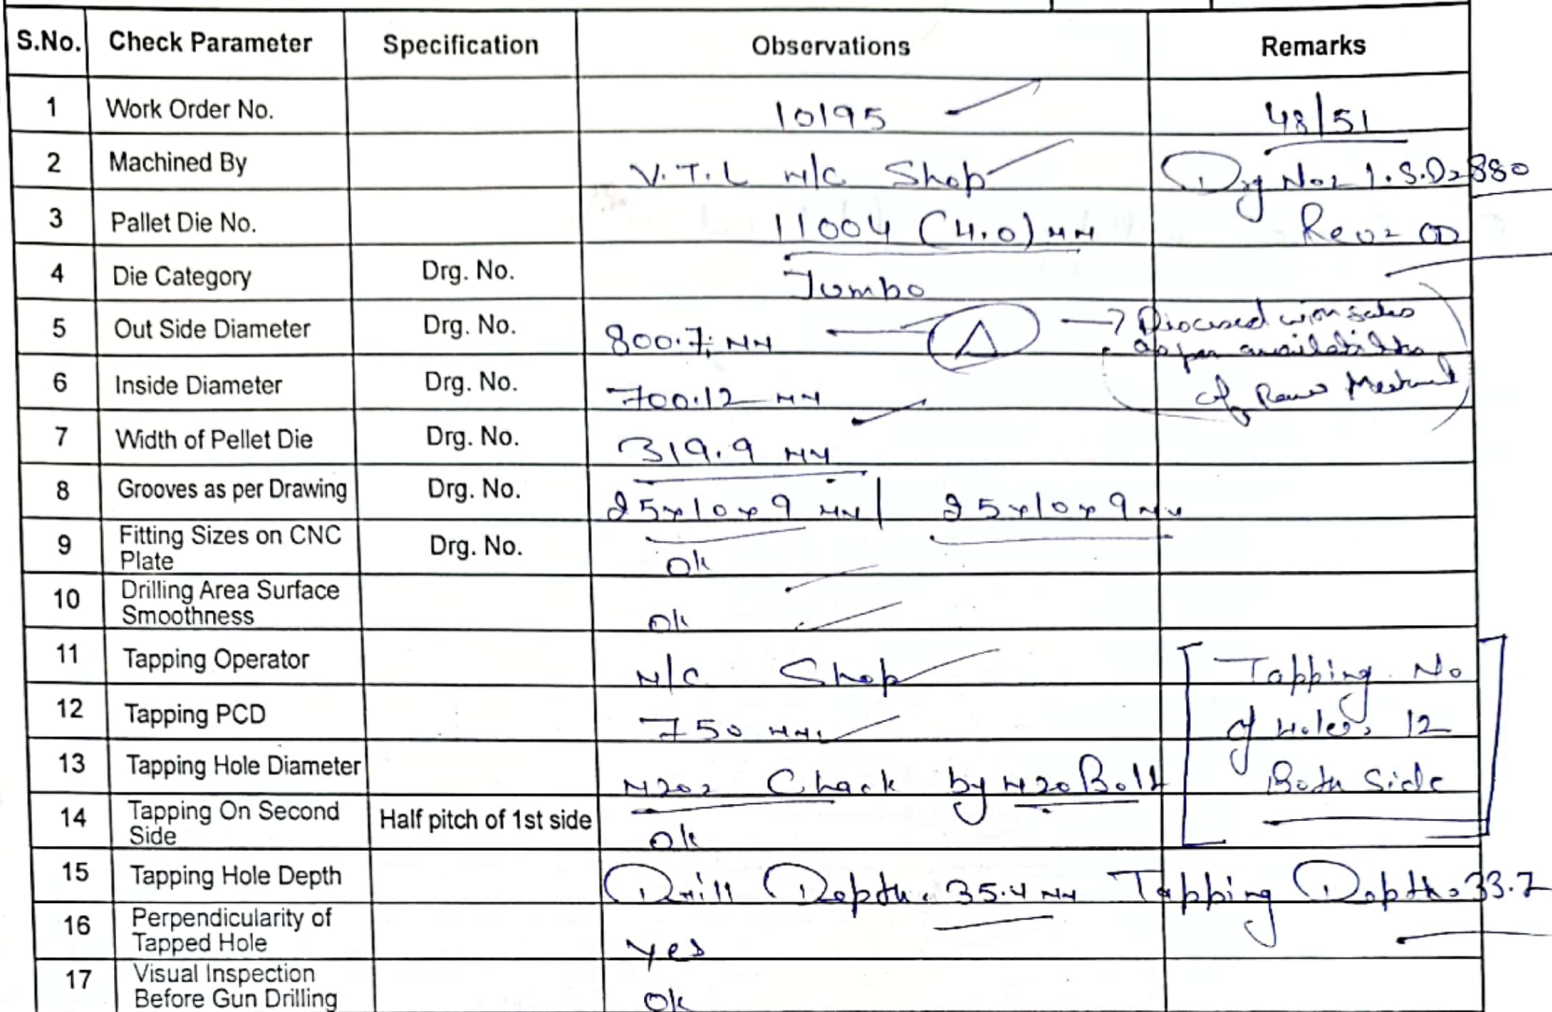 S.No. Check Parameter Specification Observations Remarks
1 Work Order No. 10195 48/51
2 Machined By V.T.L M/C Shop Drg No= I.S.D=880
3 Pallet Die No. 11004 (4.0) MM Rev= 00
4 Die Category Drg. No. Jumbo
5 Out Side Diameter Drg. No. 800.7 MM A → Discused with sales
as per availability
6 Inside Diameter Drg. No. 700.12 MM of Raw
7 Width of Pellet Die Drg. No. 319.9 MM
8 Grooves as per Drawing Drg. No. 25x10x9 MM | 25x10x9 MM
9 Fitting Sizes on CNC Plate Drg. No. Ok
10 Drilling Area Surface Smoothness Ok
11 Tapping Operator M/C Shop Tapping No
12 Tapping PCD 750 MM. of Holes 12
13 Tapping Hole Diameter M20= Chack by M20 Bolt Both Side
14 Tapping On Second Side Half pitch of 1st side Ok
15 Tapping Hole Depth Drill Depth. 35.4 MM Tapping Depth= 33.7
16 Perpendicularity of Tapped Hole Yes
17 Visual Inspection Before Gun Drilling Ok